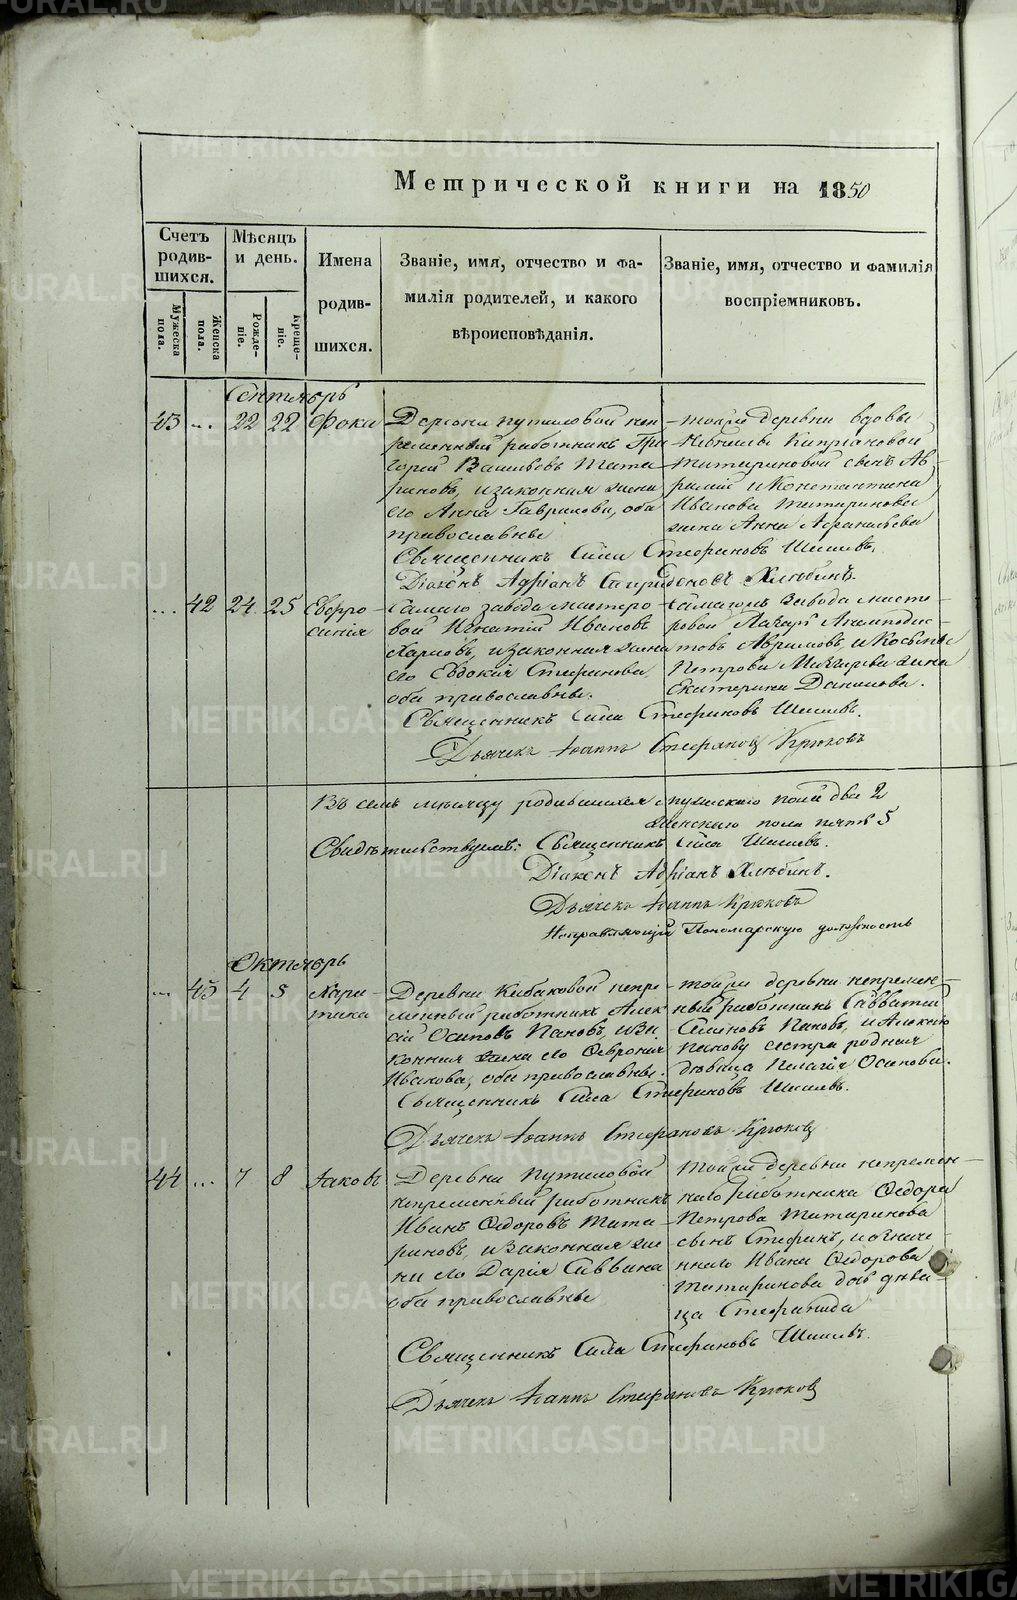 Метрической книги на 1850
Счетъ родившихся.
Мѣсяцъ и день.
Имена родившихся.
Званіе, имя, отчество и фамилія родителей, и какого вѣроисповѣданія.
Званіе, имя, отчество и фамилія воспріемниковъ.
Мужеска пола.
Женска пола.
Рожденіе.
Крещеніе.
Сентябрь
43 ... 22 22 Фока
Деревни Путиловой неп
ременный работникъ Гри
горій Васильевъ Тата
риновъ, и законная жена
его Анна Гаврилова, оба
православные
тойже деревни вдовы
Киприановой
Татариновой сынъ Ав
рамій и Константина
Иванова Татаринова
жена Анна
Священникъ Сила Стефановъ Шишевъ.
Діаконъ Адріанъ Спиридоновъ Хлюбинъ.
... 42 24 25 Евфро
синія
Самаго завода мастеро
вой Игнатій Ивановъ
и законная жена
его Евдокія Стефанова,
оба православные.
Самагожъ завода масте
ровой Лазарь
товъ и Косьмы
Петрова жена
Екатерина Данилова.
Священникъ Сила Стефановъ Шишевъ.
Дьячекъ Іоаннъ Стефановъ Крюковъ
Въ семъ мѣсяцу родившихся мужескаго пола два 2
женскаго пола пять 5
Свидѣтельствуемъ: Священникъ Сила Шишевъ.
Діаконъ Адріанъ Хлюбинъ.
Дьячекъ Іоаннъ Крюковъ
Исправляющій Пономарскую должность
Октябрь
... 43 4 5 Хари
тина
Деревни Кабаковой непре
менный работникъ Алек
сій Осиповъ Пановъ, и за
конная жена его Февронія
Ивакова, оба православные.
тойже деревни непремен
ный работникъ Савватій
Семеновъ Пановъ, и Алексію
Панову сестра родная
дѣвица Пелагія Осипова.
Священникъ Сила Стефановъ Шишевъ.
Дьячекъ Іоаннъ Стефановъ Крюковъ
44 ... 7 8 Іаковъ
Деревни Путиловой
непременный работникъ
Иванъ Федоровъ Тата
риновъ, и законная же
на его Дарія Саввина
оба православные
Тойже деревни непремен
наго работника Федора
Петрова Татаринова
сынъ Стефанъ, и означе
ннаго Ивана Федорова
Татаринова дочь дѣви
ца Стефанида
Священникъ Сила Стефановъ Шишевъ.
Дьячекъ Іоаннъ Стефановъ Крюковъ
METRIKI.GASO-URAL.RU